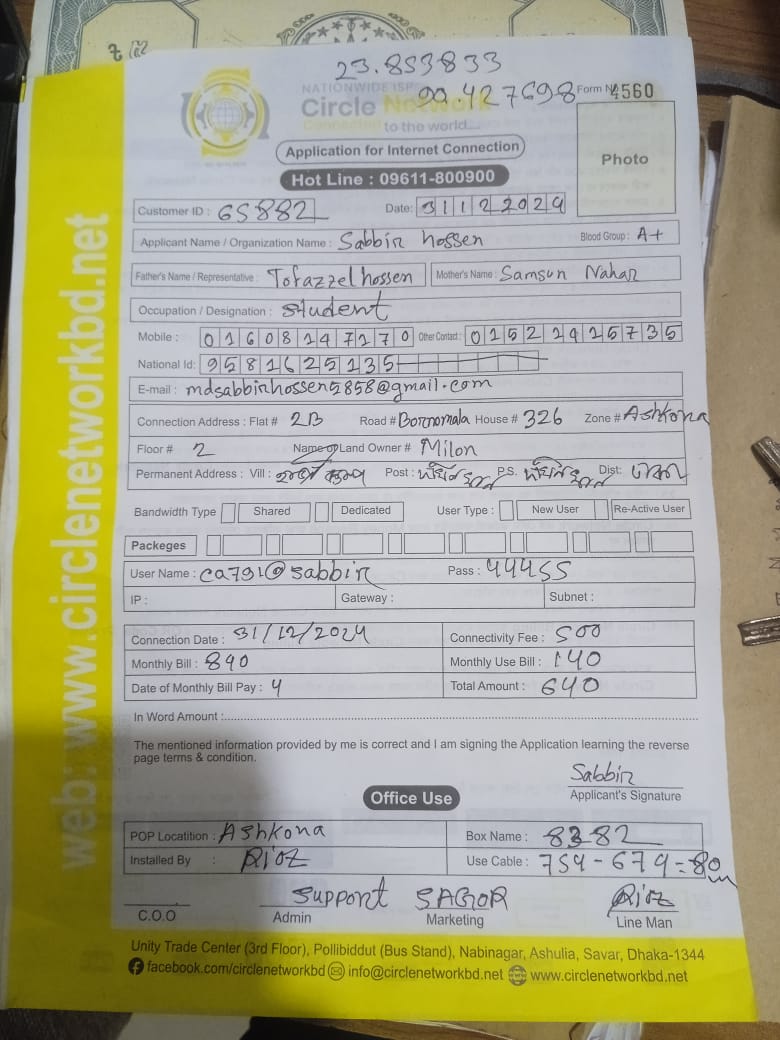 23.853833
90 427698
NATIONWIDE ISP Form No 4560
Circle Network
Connected to the world....
Application for Internet Connection
Photo
Hot Line : 09611-800900
Customer ID : 65882 Date: 31122024
Applicant Name / Organization Name : Sabbir hossen Blood Group : A+
Father's Name / Representative : Tofazzel hossen Mother's Name : Samsun Nahar
Occupation / Designation : Student
Mobile : 01608147270 Other Contact : 01522425735
National Id: 9581625135
E-mail : mdsabbirhossen5858@gmail.com
Connection Address : Flat # 2B Road # Bornomala House # 326 Zone # Ashkona
Floor # 2 Name of Land Owner # Milon
Permanent Address : Vill : Post : P.S. Dist: ঢাকা
Bandwidth Type Shared Dedicated User Type : New User Re-Active User
Packeges
User Name : ca791@sabbir Pass : 44455
IP : Gateway : Subnet :
Connection Date : 31/12/2024 Connectivity Fee : 500
Monthly Bill : 840 Monthly Use Bill : 140
Date of Monthly Bill Pay : 4 Total Amount : 640
In Word Amount :
The mentioned information provided by me is correct and I am signing the Application learning the reverse
page terms & condition.
Sabbir
Applicant's Signature
Office Use
POP Locatition : Ashkona Box Name : 8382
Installed By : Rioz Use Cable : 754-674=80m
Support SAGOR Rioz
C.O.O Admin Marketing Line Man
Unity Trade Center (3rd Floor), Pollibiddut (Bus Stand), Nabinagar, Ashulia, Savar, Dhaka-1344
facebook.com/circlenetworkbd info@circlenetworkbd.net www.circlenetworkbd.net
web: www.circlenetworkbd.net